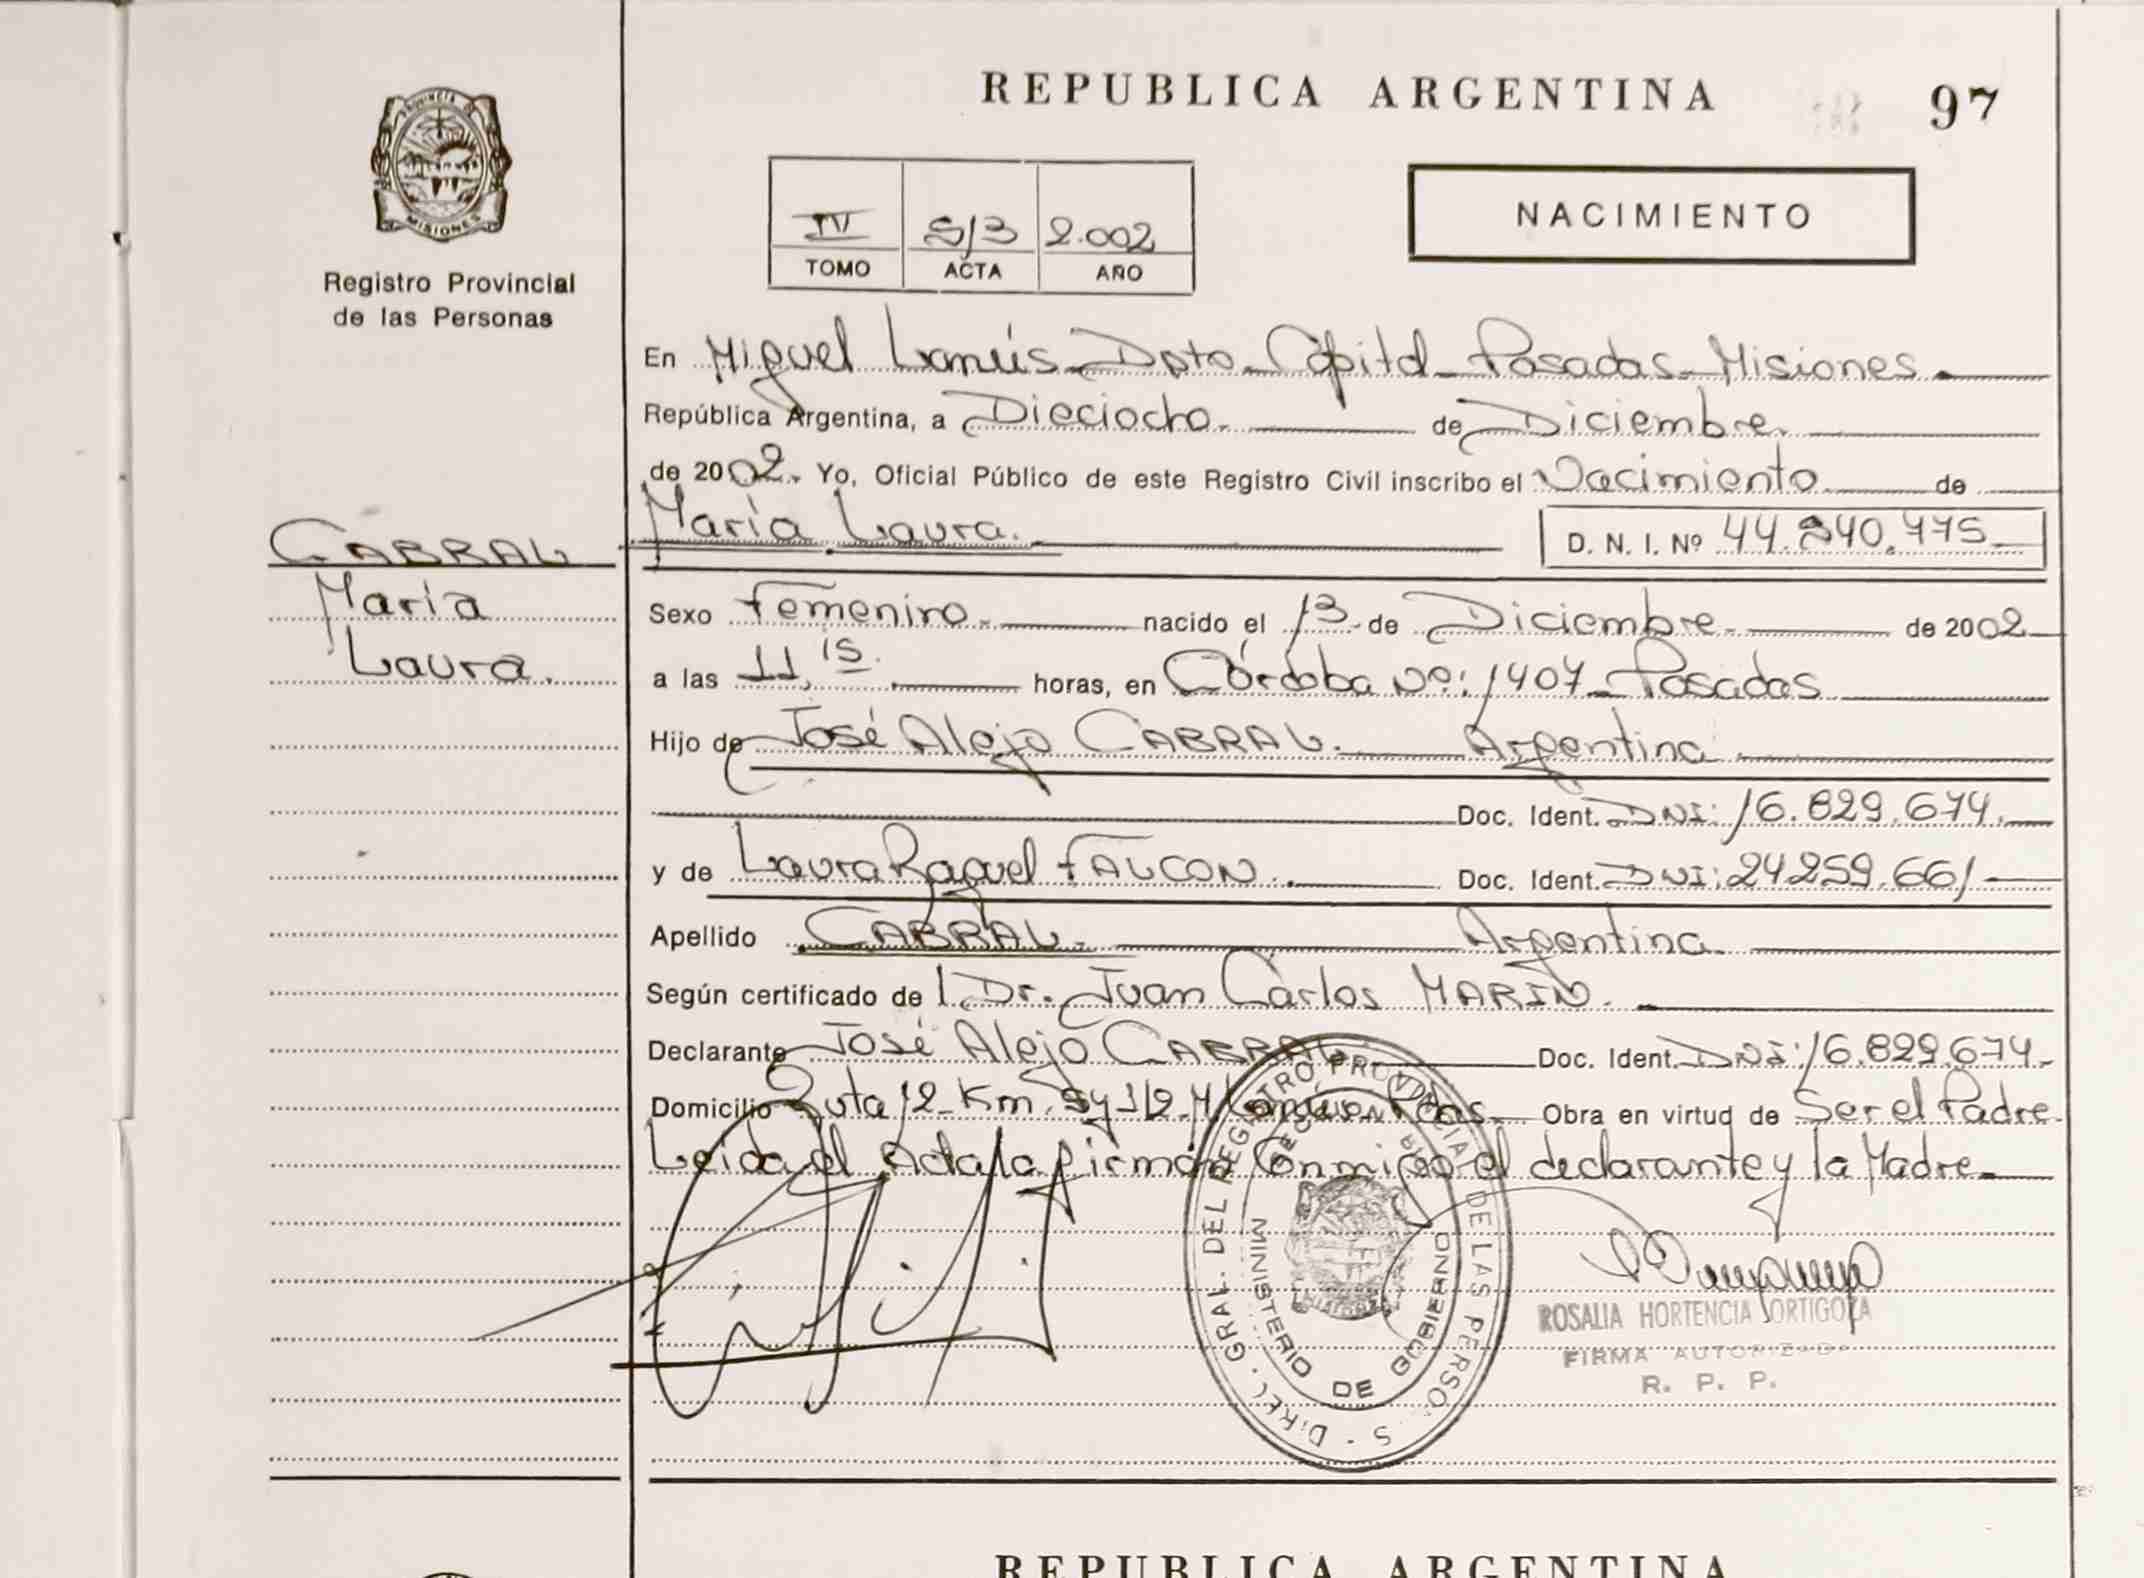 REPUBLICA ARGENTINA
97
PROVINCIA DE
MISIONES
Registro Provincial
de las Personas
IV S/3 2.002
TOMO ACTA AÑO
NACIMIENTO
En Miguel Lanús Dpto Cápital Posadas Misiones
República Argentina, a Dieciocho de Diciembre
de 2002. Yo, Oficial Público de este Registro Civil inscribo el Nacimiento de
María Laura. D. N. I. Nº
CABRAL
María
Laura.
Sexo Femenino. nacido el 13 de Diciembre de 2002
a las 11,15. horas, en Córdoba Nº: 1407 Posadas
Hijo de José Alejo CABRAL. Argentina
Doc. Ident. DNI: 16.829.674.
y de Laura Raquel FALCON. Doc. Ident. DNI: 24259.661
Apellido CABRAL. Argentina.
Según certificado de l Dr. Juan Carlos MARIN.
Declarante José Alejo CABRAL Doc. Ident. DNI: 16.829.674.
Domicilio Ruta 12 Km. 9 y 1/2 M. Lanús Pdas. Obra en virtud de Ser el Padre
Leida el Acta la firman Conmigo el declarante y la Madre
DIREC. GRAL. DEL REGISTRO PROVINCIAL DE LAS PERSONAS
MINISTERIO DE GOBIERNO
ROSALIA HORTENCIA ORTIGOZA
FIRMA AUTORIZADA
R. P. P.
REPUBLICA ARGENTINA